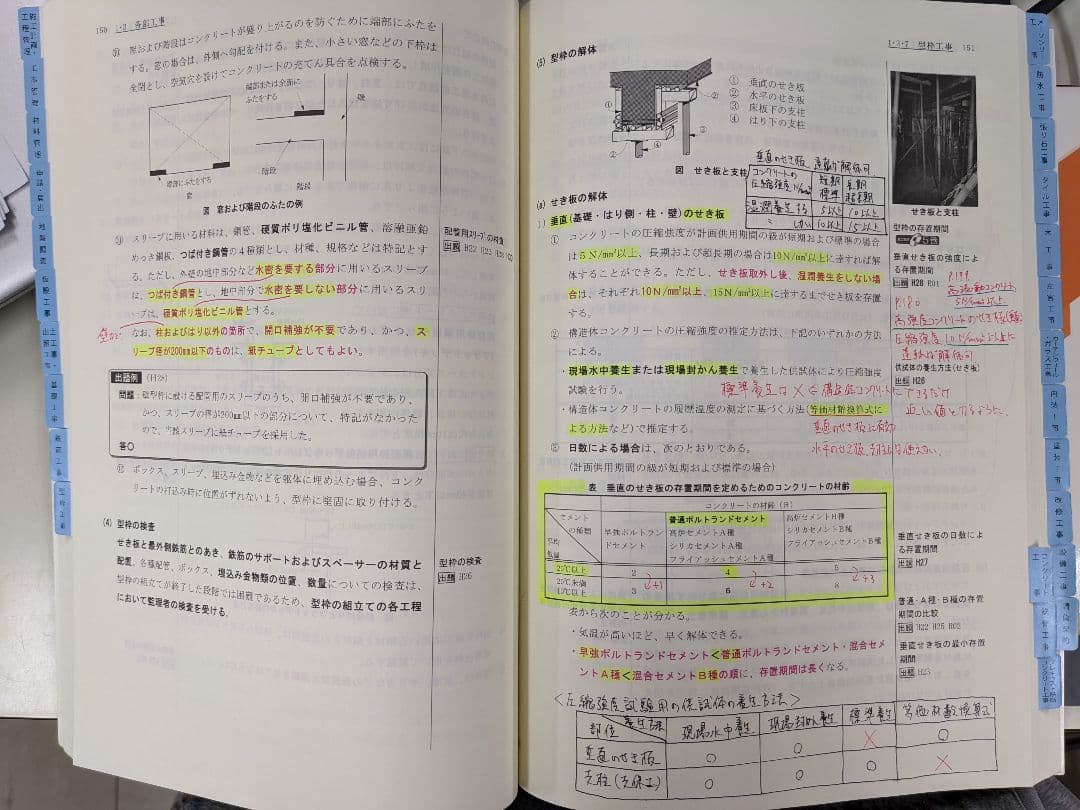 150 1-3 各部工事
⑪ 庇および階段はコンクリートが盛り上がるのを防ぐために端部にふたを
する。窓の場合は、外側へ勾配を付ける。また、小さい窓などの下枠は
全閉とし、空気穴を設けてコンクリートの充てん具合を点検する。
端部または全面に
ふたをする
端部にふたをする
窓
階段
階段
図 窓および階段のふたの例
スリーブに用いる材料は、鋼管、硬質ポリ塩化ビニル管、溶融亜鉛
めっき鋼板、つば付き鋼管の4種類とし、材種、規格などは特記とす
る。ただし、外壁の地中部分など水密を要する部分に用いるスリーブ
は、つば付き鋼管とし、地中部分で水密を要しない部分に用いるスリ
ーブは、硬質ポリ塩化ビニル管とする。
なお、柱およびはり以外の箇所で、開口補強が不要であり、かつ、ス
リーブ径が200mm以下のものは、紙チューブとしてもよい。
配管用スリーブの材質
出題 H22
出題例 (H28)
問題:壁型枠に設ける配管用のスリーブのうち、開口補強が不要であり、
かつ、スリーブの径が200mm以下の部分について、特記がなかった
ので、当該スリーブに紙チューブを採用した。
答○
⑫ ボックス、スリーブ、埋込み金物などを躯体に埋め込む場合、コンク
リートの打込み時に位置がずれないよう、型枠に堅固に取り付ける。
(4) 型枠の検査
せき板と最外側鉄筋とのあき、鉄筋のサポートおよびスペーサーの材質と
配置、各種配管、ボックス、埋込み金物類の位置、数量についての検査は、
型枠の組立てが終了した段階では困難であるため、型枠の組立ての各工程
において監理者の検査を受ける。
型枠の検査
出題 H26
1-3-7 型枠工事 151
(5) 型枠の解体
① 垂直のせき板
② 水平のせき板
③ 床板下の支柱
④ はり下の支柱
図 せき板と支柱
せき板と支柱
垂直のせき板 直ちに解体可
コンクリートの 短期 長期
圧縮強度N/mm² 標準 超長期
湿潤養生する 5以上 10以上
〃 しない 10以上 15以上
(6) せき板の解体
1) 垂直(基礎・はり側・柱・壁)のせき板
① コンクリートの圧縮強度が計画供用期間の級が短期および標準の場合
は5N/mm²以上、長期および超長期の場合は10N/mm²以上に達すれば解
体することができる。ただし、せき板取外し後、湿潤養生をしない場
合は、それぞれ10N/mm²以上、15N/mm²以上に達するまでせき板を存置
する。
型枠の存置期間
垂直せき板の強度によ
る存置期間
出題 H28 R01
高強度コンクリートのせき板
圧縮強度 10N/mm²以上に
直ちに解体可
供試体の養生方法(せき板)
出題 H26
② 構造体コンクリートの圧縮強度の推定方法は、下記のいずれかの方法
による。
・現場水中養生または現場封かん養生で養生した供試体により圧縮強度
試験を行う。
標準養生は× ← 構造体コンクリートにできるだけ
近い値とするように、
・構造体コンクリートの履歴温度の測定に基づく方法(等価材齢換算式に
よる方法など)で推定する。
垂直のせき板に有効
水平のせき板、支柱には使えない
③ 日数による場合は、次のとおりである。
(計画供用期間の級が短期および標準の場合)
表 垂直のせき板の存置期間を定めるためのコンクリートの材齢
コンクリートの材齢(日)
セメント
の種類
平均
気温
早強ポルトラン
ドセメント
普通ポルトランドセメント
高炉セメントA種
シリカセメントA種
フライアッシュセメントA種
高炉セメントB種
シリカセメントB種
フライアッシュセメントB種
20℃以上 2 4 5
20℃未満
10℃以上 3 6 8
+1 +2 +3
垂直せき板の日数によ
る存置期間
出題 H27
表から次のことが分かる。
・気温が高いほど、早く解体できる。
・早強ポルトランドセメント<普通ポルトランドセメント・混合セメ
ントA種<混合セメントB種の順に、存置期間は長くなる。
普通・A種・B種の存置
期間の比較
出題 H22 H25 R02
垂直せき板の最小存置
期間
出題 H23
<圧縮強度試験用の供試体の養生方法>
部位 養生方法 現場水中養生 現場封かん養生 標準養生 等価材齢換算式
垂直のせき板 ○ ○ × ○
支柱(支保工) ○ ○ ○ ×
防水工事
張り石工事
タイル工事
木工事
左官工事
塗装工事
改修工事